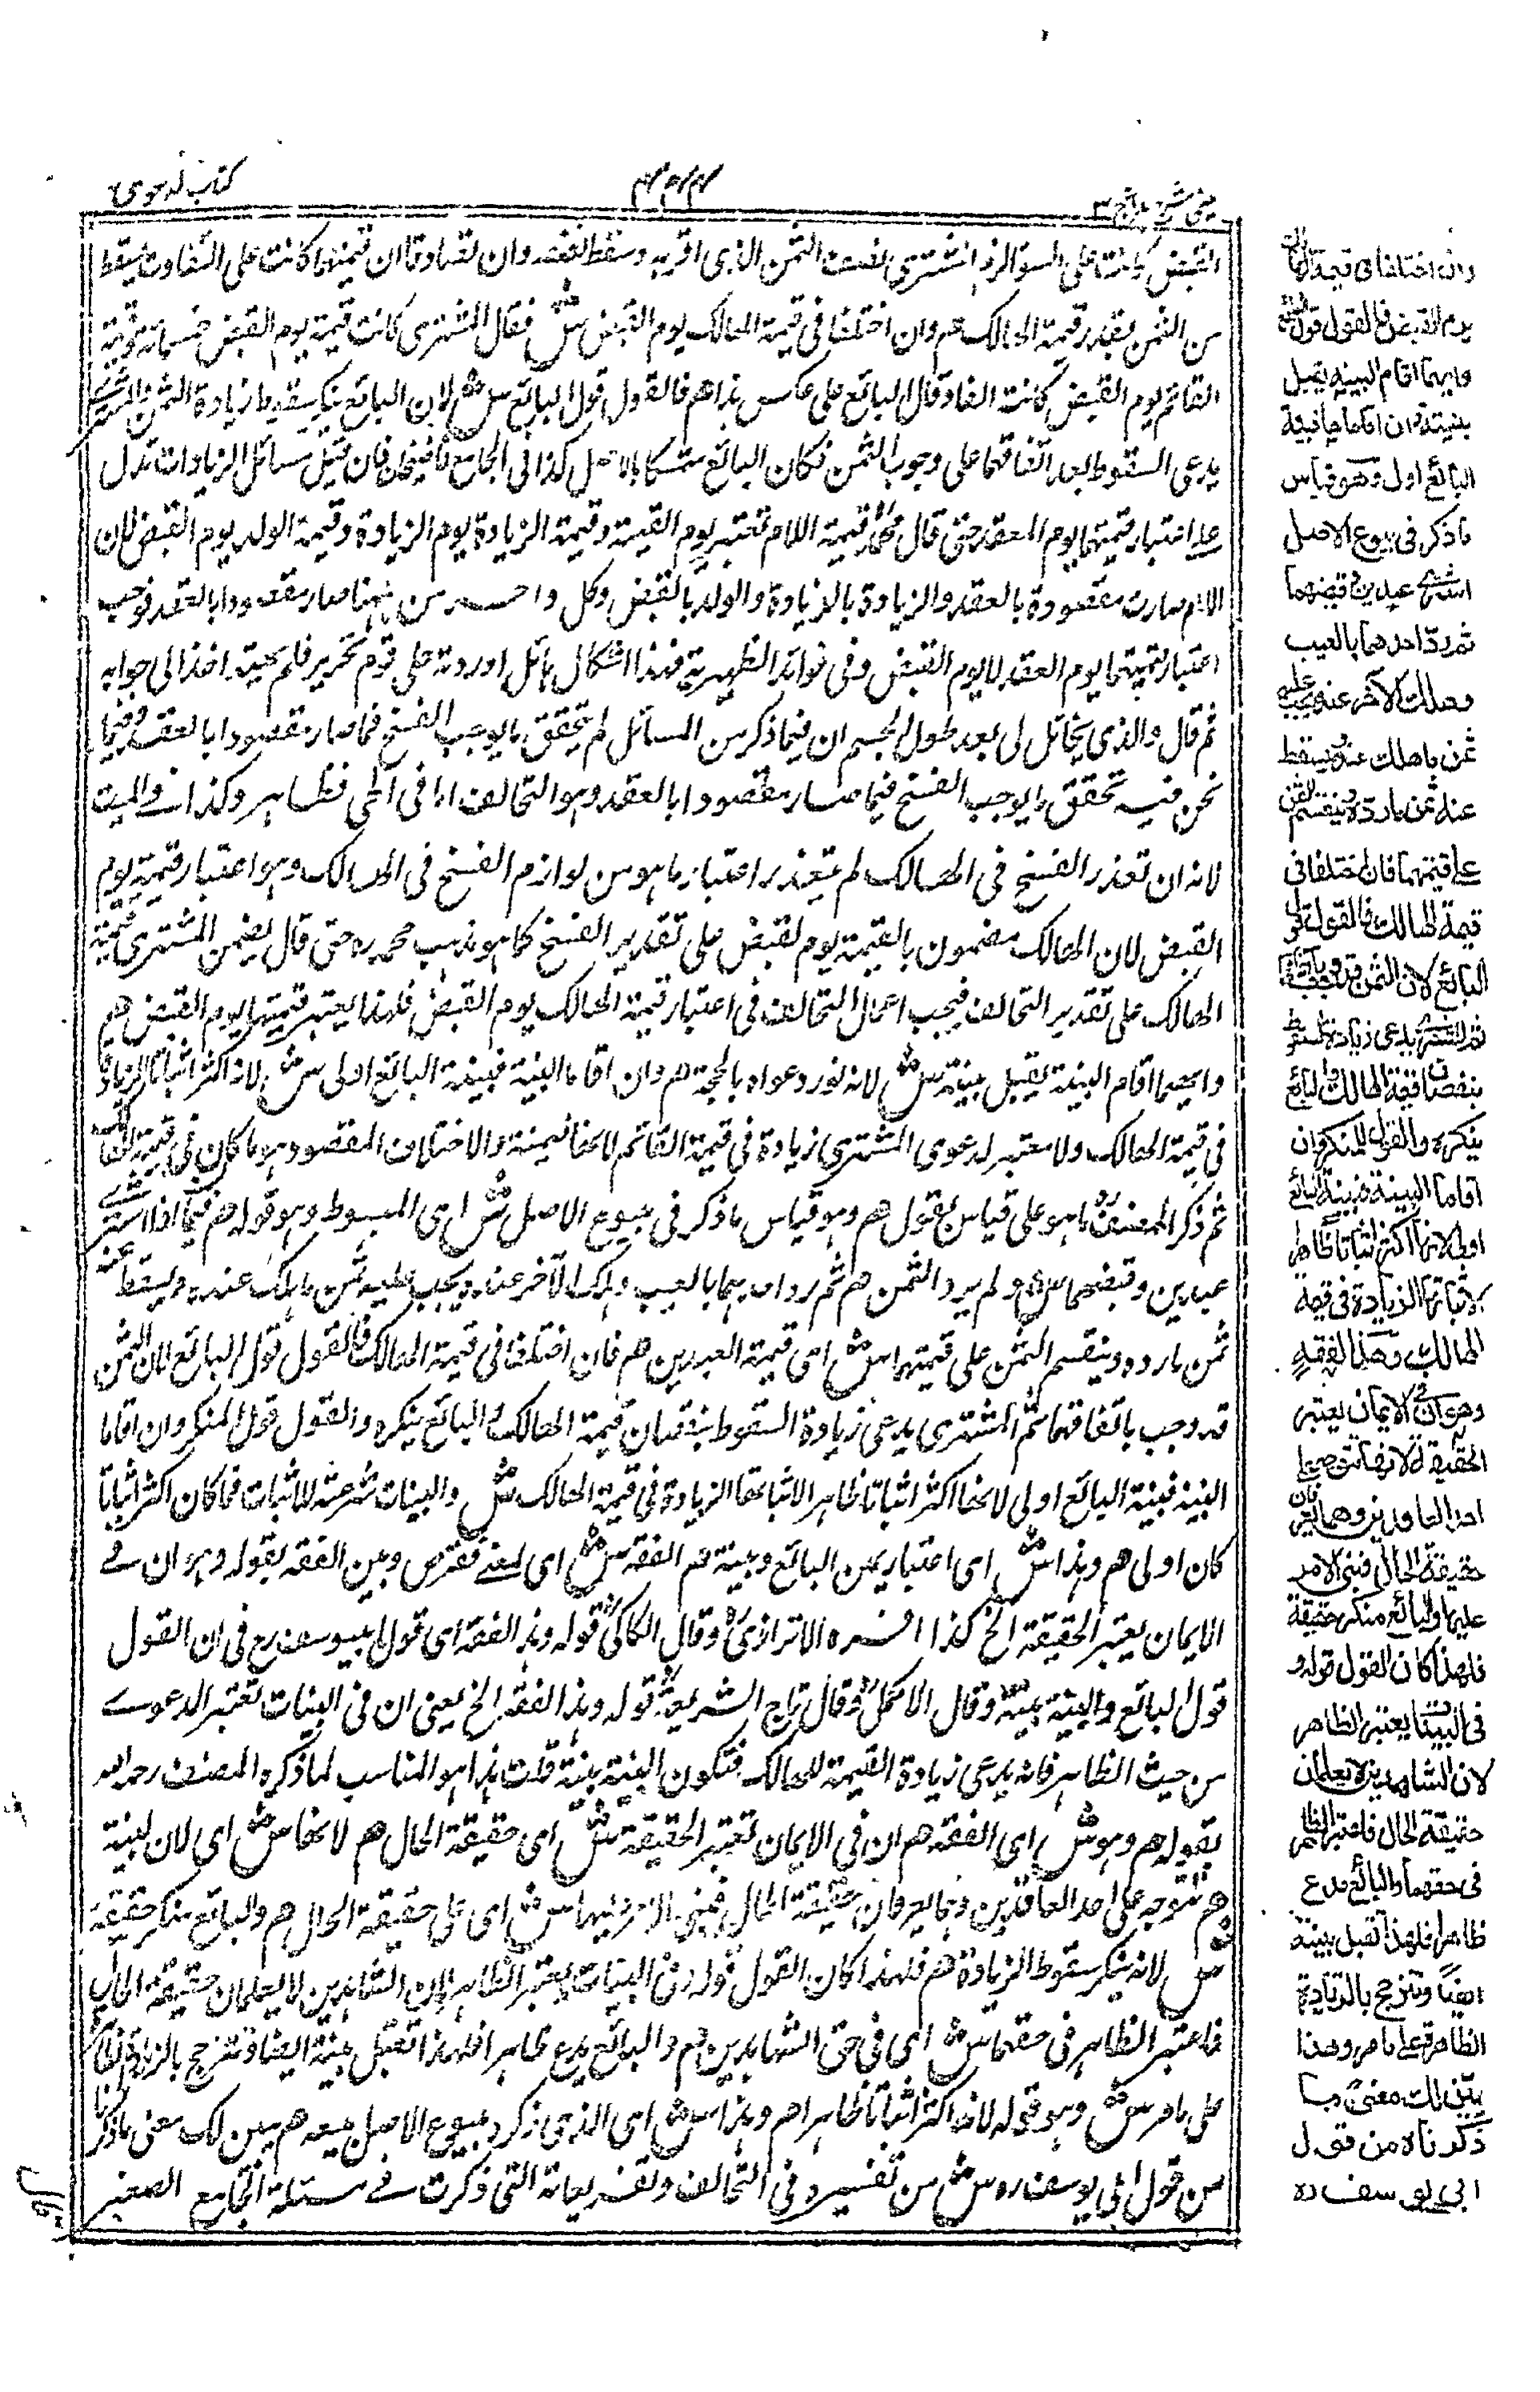 عینی شرح ہدایہ ج ۳
کتاب الدعوی
القبض کانت علی السواء لزم المشتری نصف الثمن الذی اقر به وسقط نصفه وان تصادقا ان قیمتهما کانت علی التفاوت یسقط
من الثمن بقدر قیمة الهالک هم وان اختلفا فی قیمة الهالک یوم القبض ش فقال المشتری کانت قیمته یوم القبض خمسمائة وقیمة
القائم یوم القبض کانت الفا وقال البائع علی عکس هذا هم فالقول قول البائع ش لان البائع ینکر سقوط زیادة الثمن والمشتری
یدعی السقوط بعد اتفاقهما علی وجوب الثمن فکان البائع متمسکا بالاصل کذا فی الجامع لقاضیخان فان قیل مسائل الزیادات تدل
علی اعتبار قیمتهما یوم العقد حتی قال محمد قیمة الام تعتبر یوم القیمة وقیمة الزیادة یوم الزیادة وقیمة الولد یوم القبض لان
الام صارت مقصودة بالعقد والزیادة بالزیادة والولد بالقبض وکل واحد من هنا صار مقصودا بالعقد فوجب
اعتبار قیمتهما یوم العقد لا یوم القبض وفی فوائد الظهیریة هذا اشکال هائل اوردته علی قرم نحریر فلم یهتد احد الی جوابه
ثم قال والذی یخائل لی بعد طول التجشم ان فیما ذکر من المسائل لم یتحقق ما یوجب الفسخ فیما صار مقصودا بالعقد وفیما
نحن فیه تحقق ما یوجب الفسخ فیما صار مقصودا بالعقد وهو التحالف اما فی الحی فظاهر وکذا فی المیت
لانه ان تعذر الفسخ فی الهالک لم یتعذر اعتبار ما هو من لوازم الفسخ فی الهالک وهو اعتبار قیمته یوم
القبض لان الهالک مضمون بالقیمة یوم القبض علی تقدیر الفسخ کما هو مذهب محمد ره حتی قال یضمن المشتری قیمة
الهالک علی تقدیر التحالف فیجب اعمال التحالف فی اعتبار قیمة الهالک یوم القبض فلهذا یعتبر قیمتهما یوم القبض هم
وایهما اقام البینة تقبل بینته ش لانه نور دعواه بالحجة هم وان اقاما البینة فبینة البائع اولی ش لانه اکثر اثباتا للزیادة
فی قیمة الهالک ولا معتبر لدعوی المشتری زیادة فی قیمة القائم لانها ضمنیة والاختلاف المقصود هو ما کان فی قیمة الهالک
ثم ذکر المصنف ما هو علی قیاس بقوله هم وهو قیاس ما ذکر فی بیوع الاصل ش ای المبسوط وهو قوله هم فیما اذا اشتری
عبدین وقبضهما ش ولم یرد الثمن هم ثم رد احدهما بالعیب وهلک الآخر عنده یجب علیه ثمن ما هلک عنده ویسقط عنه
ثمن ما رده وینقسم الثمن علی قیمتهما ش ای قیمة العبدین هم فان اختلفا فی قیمة الهالک فالقول قول البائع لان الثمن
قد وجب باتفاقهما ثم المشتری یدعی زیادة السقوط بنقصان قیمة الهالک والبائع ینکره والقول قول المنکر وان اقاما
البینة فبینة البائع اولی لانها اکثر اثباتا ظاهرا لاثباتها الزیادة فی قیمة الهالک ش والبینات شرعت للاثبات فما کان اکثر اثباتا
کان اولی هم وهذا ش ای اعتبار یمین البائع وبینته هم الفقه ش ای لمعنی فقهی وبین الفقه بقوله وهو ان فی
الایمان یعتبر الحقیقة الخ کذا فسره الاترازی وقال الکاکی قوله وهذا الفقه ای قول ابی یوسف رح فی ان القول
قول البائع والبینة بینته وقال الاکمل وقال تاج الشریعة قوله وهذا الفقه الخ یعنی ان فی البینات تعتبر الدعوی
من حیث الظاهر فانه یدعی زیادة القیمة للهالک فتکون البینة بینته قلت هذا هو المناسب لما ذکره المصنف رحمه الله
بقوله هم وهو ش ای الفقه هم ان فی الایمان تعتبر الحقیقة ش ای حقیقة الحال هم لانها ش ای لان البینة
هم تتوجه علی احد العاقدین وهما یعرفان حقیقة الحال فبنی الامر علیها ش ای علی حقیقة الحال هم والبائع منکر حقیقة
ش لانه ینکر سقوط الزیادة هم فلهذا کان القول قوله وفی البینات یعتبر الظاهر لان الشاهدین لا یعلمان حقیقة الحال
فاعتبر الظاهر فی حقهما ش ای فی حق الشاهدین هم والبائع مدع ظاهرا فلهذا تقبل بینته ایضا وتترجح بالزیادة الظاهرة
علی ما مر ش وهو قوله لانها اکثر اثباتا ظاهرا هم وهذا ش ای الذی ذکر فی بیوع الاصل هم یبین لک معنی ما ذکرنا
من قول ابی یوسف ره ش من تفسیره فی التحالف وتفریعاته التی ذکرت فی مسئلة الجامع الصغیر
قال
وان اختلفا فی قیمة الهالک
یوم القبض فالقول قول البائع
وایهما اقام البینة یقبل
بینته وان اقاماها فبینة
البائع اولی وهو قیاس
ما ذکر فی بیوع الاصل
اشتری عبدین وقبضهما
ثم رد احدهما بالعیب
وهلک الآخر عنده یجب علیه
ثمن ما هلک عنده ویسقط
عنه ثمن ما رده وینقسم الثمن
علی قیمتهما فان اختلفا فی
قیمة الهالک فالقول قول
البائع لان الثمن قد وجب باتفاقهما
ثم المشتری یدعی زیادة السقوط
بنقصان قیمة الهالک والبائع
ینکره والقول للمنکر وان
اقاما البینة فبینة البائع
اولی لانها اکثر اثباتا ظاهرا
لاثباتها الزیادة فی قیمة
الهالک وهذا الفقه
وهو ان فی الایمان یعتبر
الحقیقة لانها تتوجه علی
احد العاقدین وهما یعرفان
حقیقة الحال فبنی الامر
علیها والبائع منکر حقیقة
فلهذا کان القول قوله و
فی البینات یعتبر الظاهر
لان الشاهدین لا یعلمان
حقیقة الحال فاعتبر الظاهر
فی حقهما والبائع مدع
ظاهرا فلهذا تقبل بینته
ایضا وتترجح بالزیادة
الظاهرة علی ما مر وهذا
یبین لک معنی ما
ذکرناه من قول
ابی یوسف ره